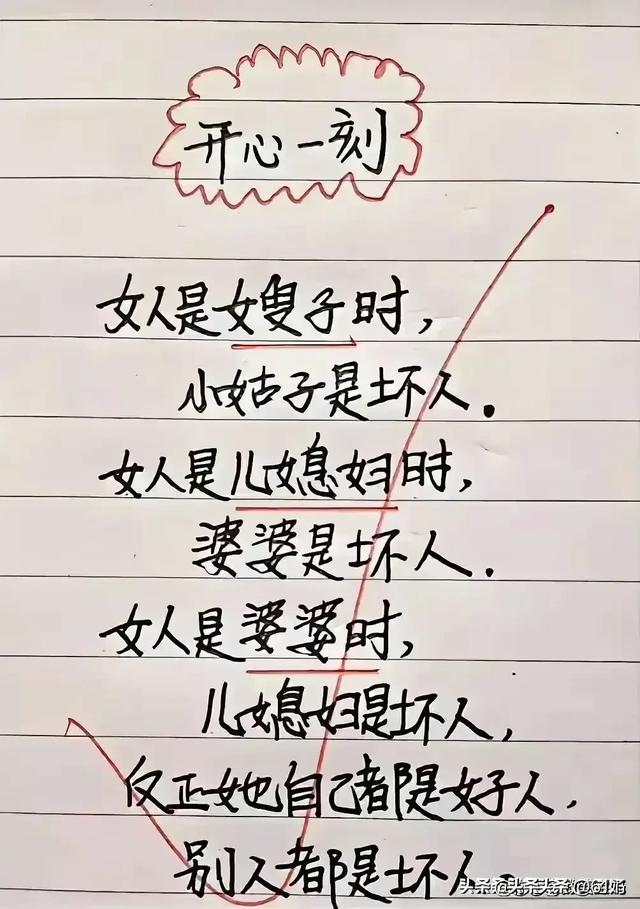 开心一刻
女人是嫂子时，
小姑子是坏人．
女人是儿媳妇时，
婆婆是坏人．
女人是婆婆时，
儿媳妇是坏人，
反正她自己都是好人．
别人都是坏人．